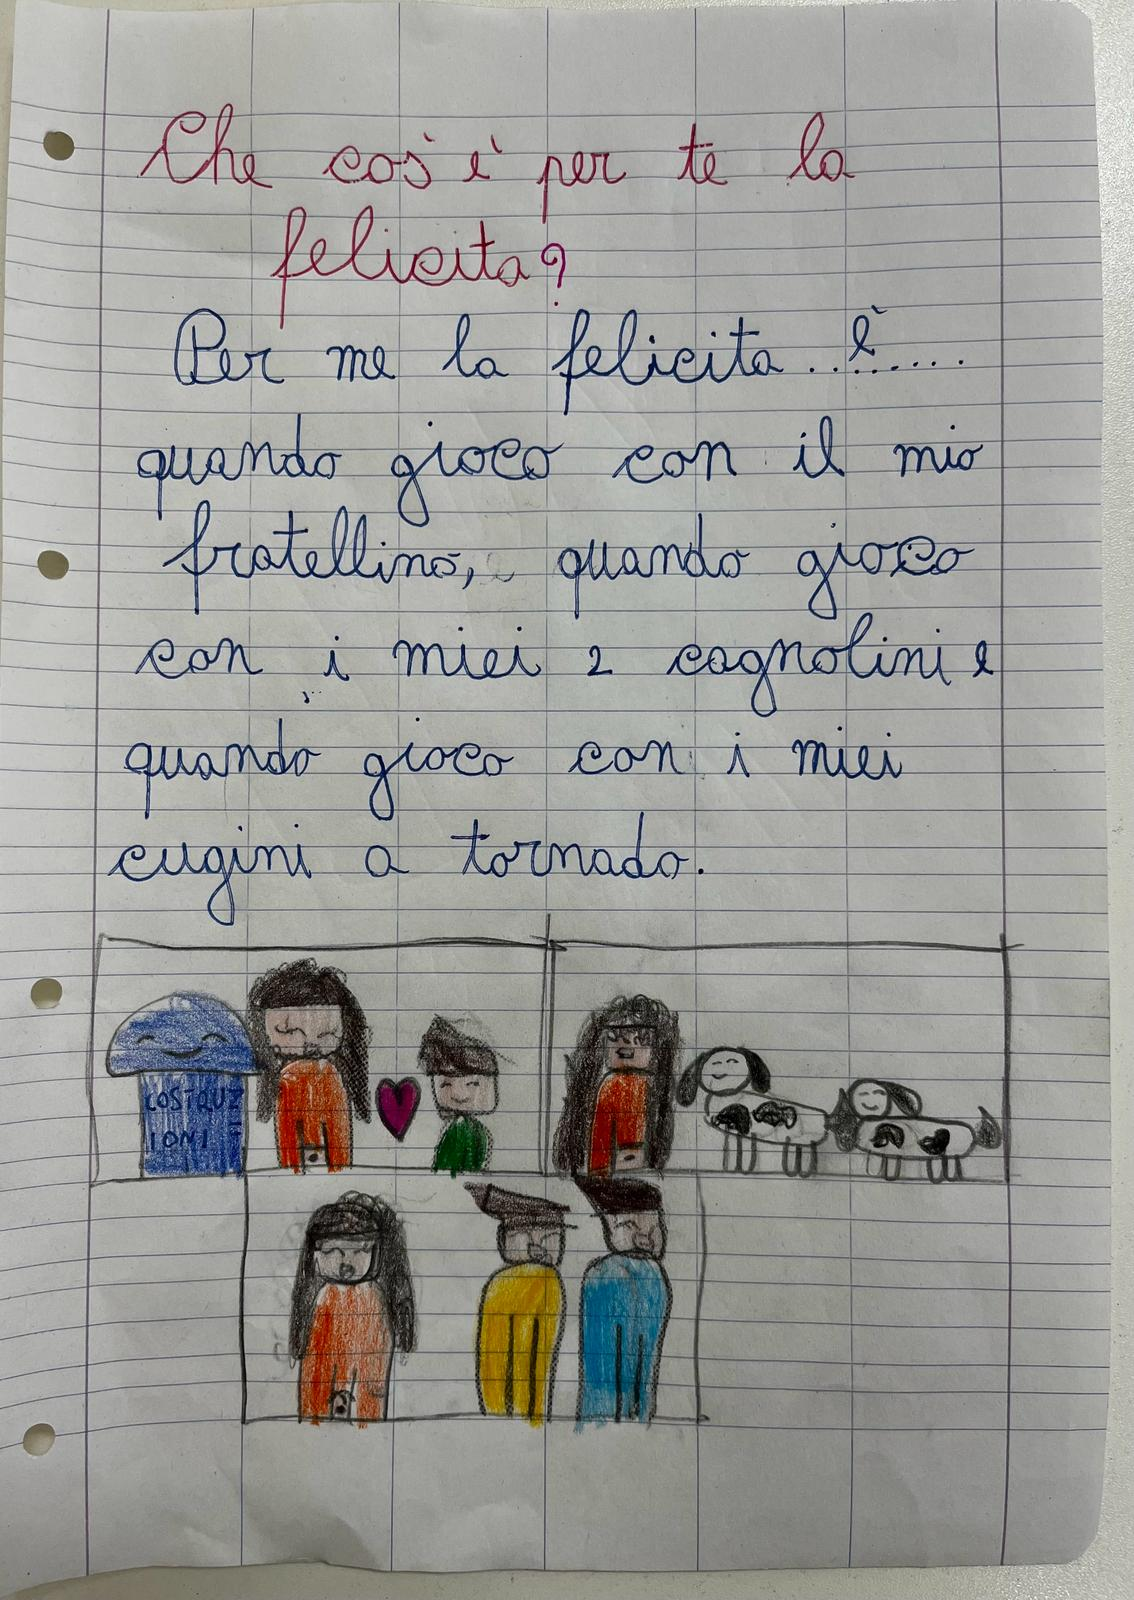 Che cos'è per te la
felicita?
Per me la felicita è.....
quando gioco con il mio
fratellino, quando gioco
con i miei 2 cagnolini e
quando gioco con i miei
cugini a tornado.
COSTRUZ
IONI